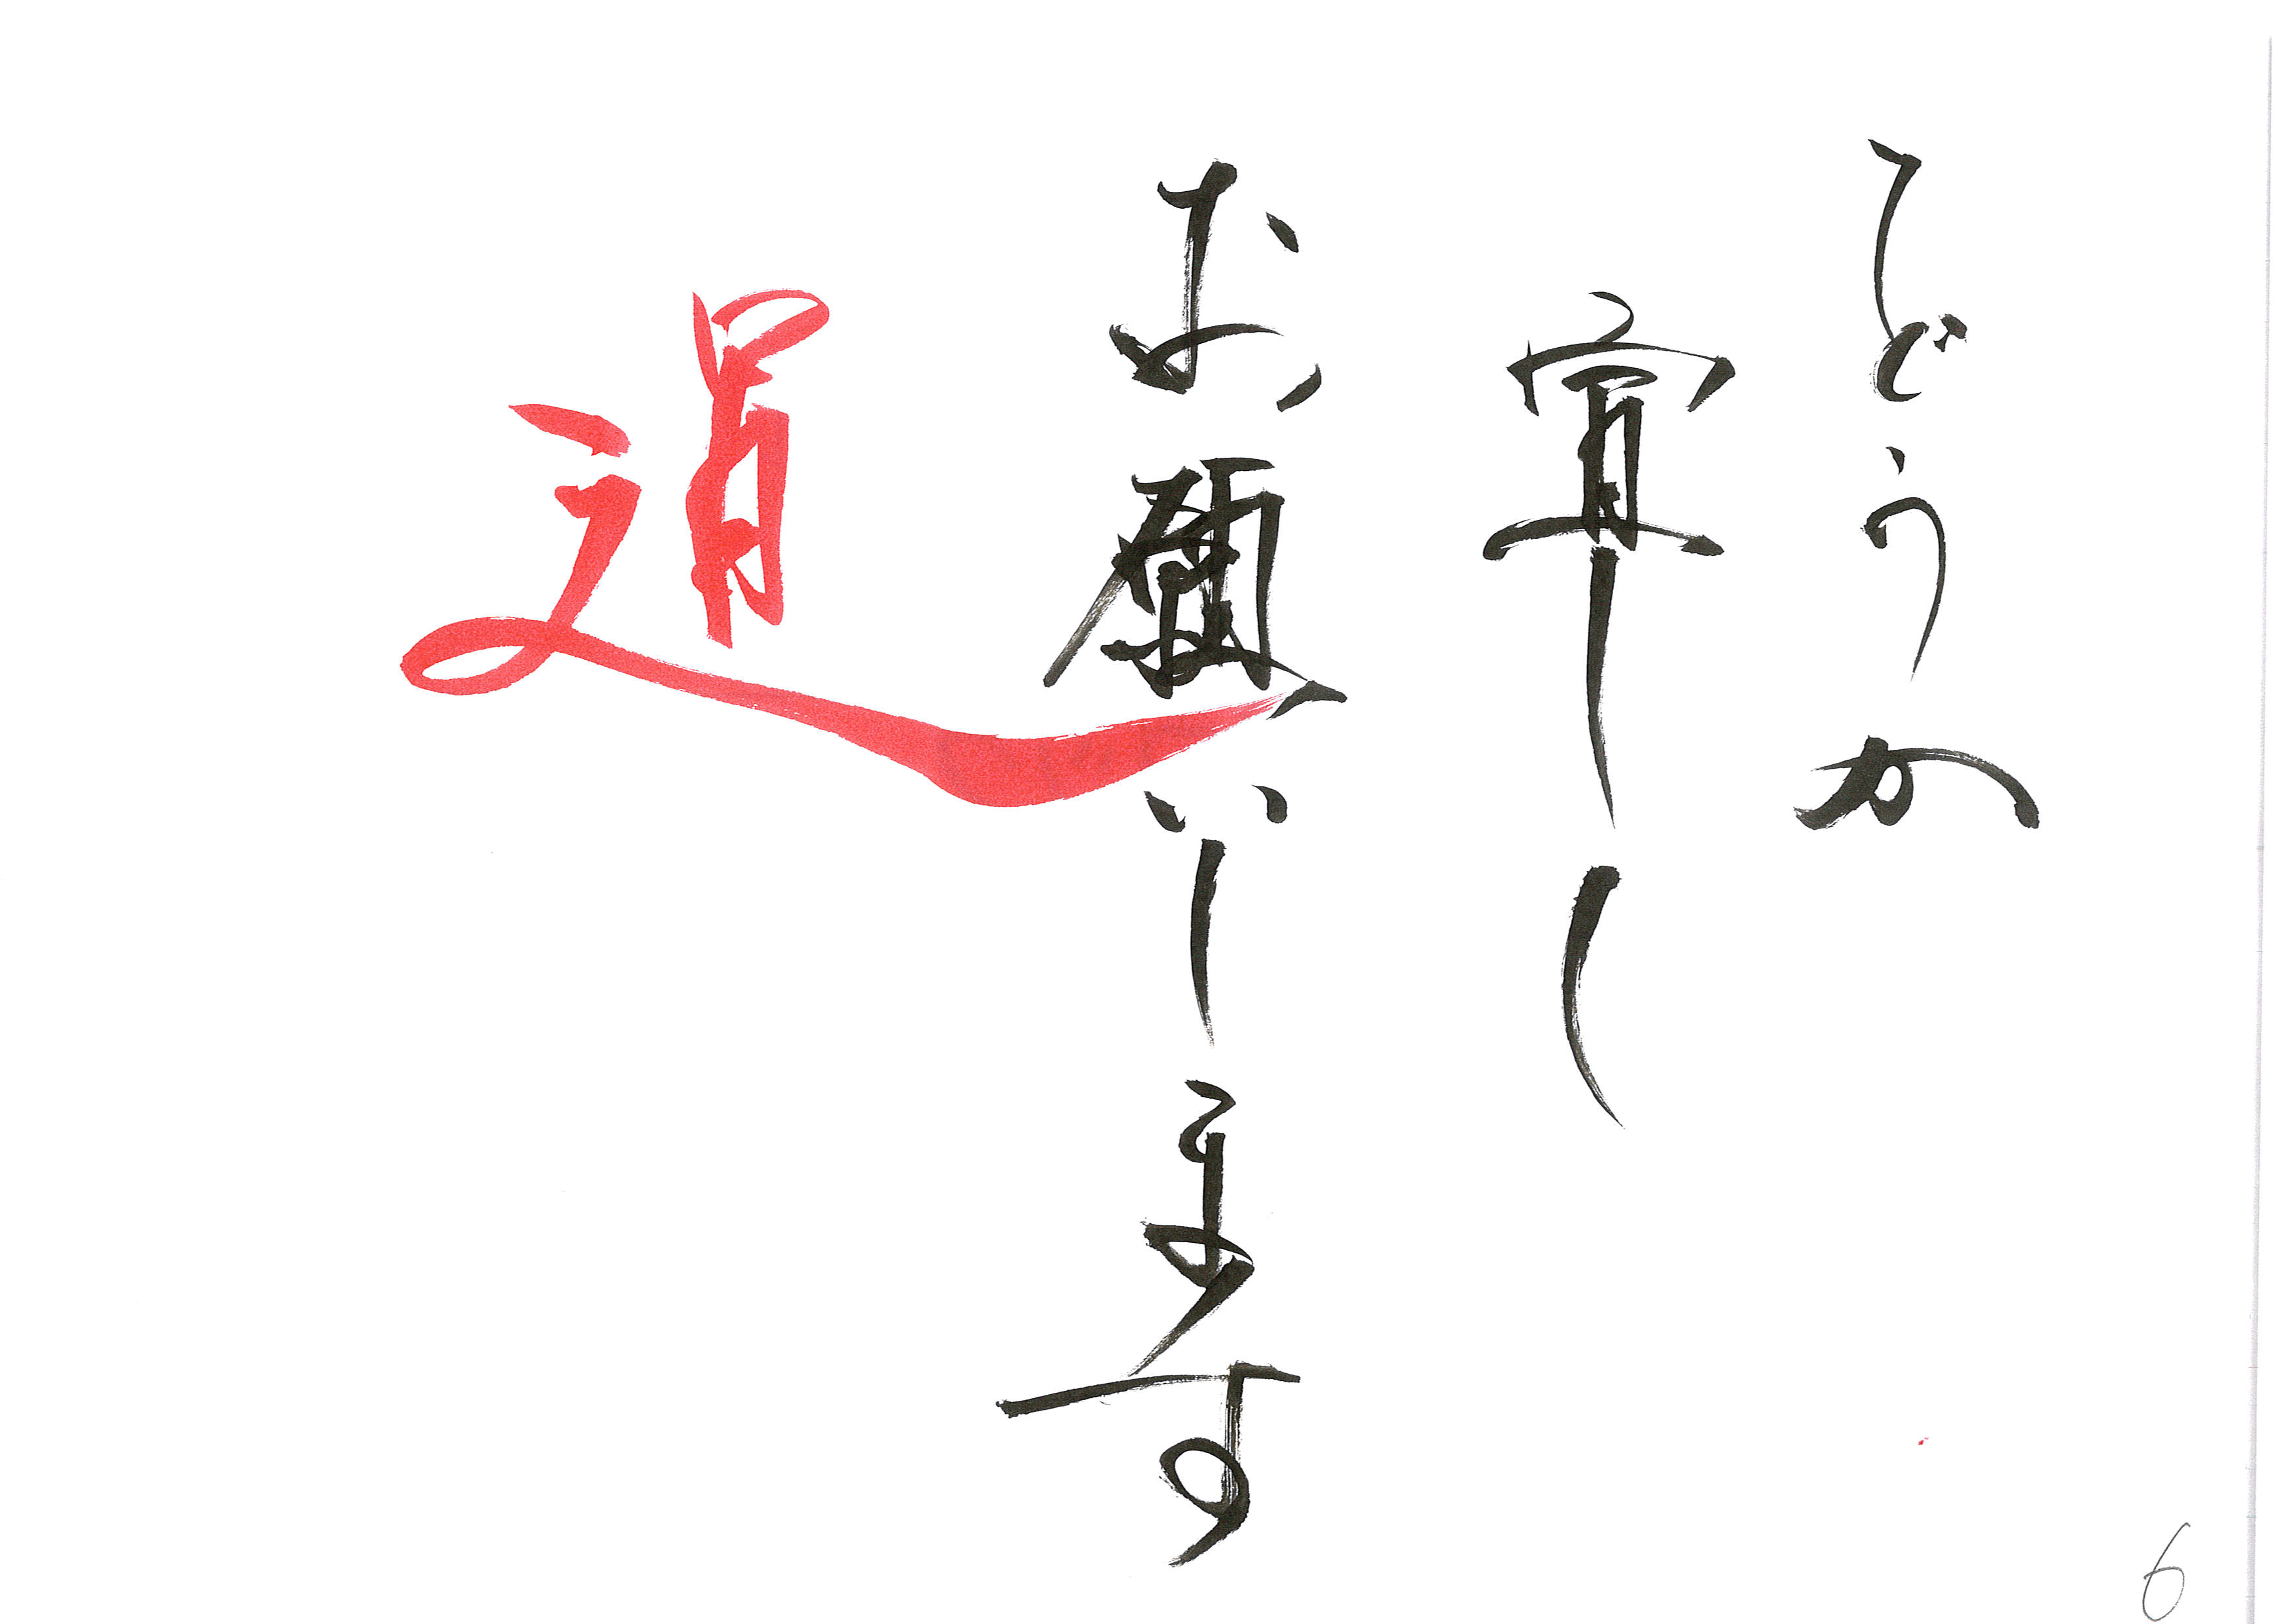 どうか
宜し
お願いします
道
6